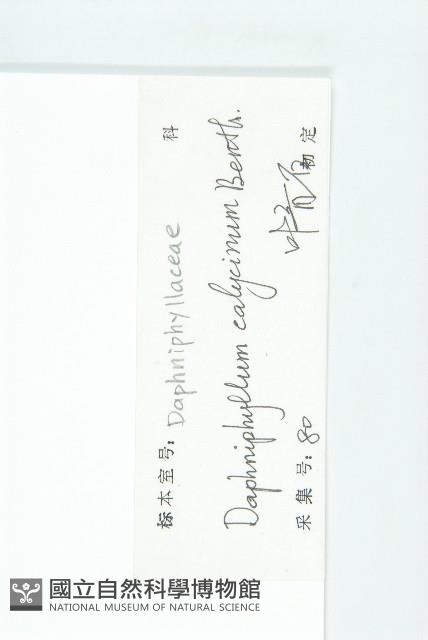 标本室号: Daphniphyllaceae 科
Daphniphyllum calycinum Benth.
采集号: 80 初定
國立自然科學博物館
NATIONAL MUSEUM OF NATURAL SCIENCE